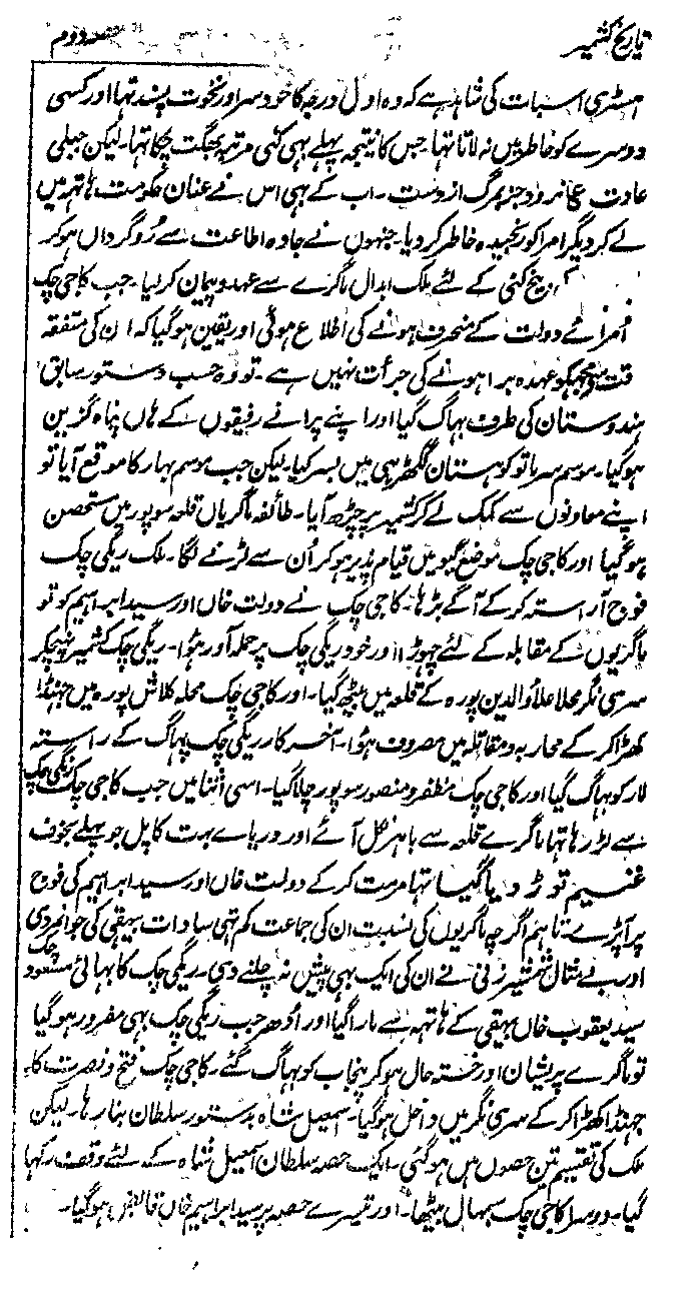 تاریخ کشمیر
حصہ دوم
ہسٹری اسبات کی شاہد ہے کہ وہ اول درجہ کا خود سر اور نخوت پسند تہا اور کسی
دوسرے کو خاطر میں نہ لاتا تہا۔ جس کا نتیجہ پہلے بہی کئی مرتبہ بھگت چکا تہا۔ لیکن جبلی
عادت ع نرود جز بمرگ از دست۔ اب کے بہی اس نے عنان حکومت ہاتہہ میں
لے کر دیگر امرا کو رنجیدہ خاطر کر دیا۔ جنہوں نے جادہ اطاعت سے روگرداں ہو کر
بیخ کنی کے لئے ملک ابدال ماگرے سے عہد و پیمان کر لیا۔ جب کاجی چک
امرائے دولت کے منحرف ہونے کی اطلاع ہوئی اور یقین ہو گیا کہ ان کی متفقہ
عہدہ برا ہونے کی جرأت نہیں ہے۔ تو وہ حسب دستور سابق
ہندوستان کی طرف بہاگ گیا اور اپنے پرانے رفیقوں کے ہاں پناہ گزین
ہو گیا۔ موسم سرما تو کوہستان گکھڑ ہی میں بسر کیا۔ لیکن جب موسم بہار کا موقع آیا تو
اپنے معاونوں سے کمک لے کر کشمیر پر چڑھ آیا۔ طائفہ ماگریاں قلعہ سوپور میں متحصن
ہو گیا اور کاجی چک موضع گبو میں قیام پذیر ہو کر اُن سے لڑنے لگا۔ ملک ریگی چک
فوج آراستہ کر کے آگے بڑہا۔ کاجی چک نے دولت خاں اور سید ابراہیم کو تو
ماگریوں کے مقابلہ کے لئے چہوڑا اور خود ریگی چک پر حملہ آور ہوا۔ ریگی چک کشمیر پہنچکر
سری نگر محلہ علاؤالدین پورہ کے قلعہ میں بیٹھ گیا۔ اور کاجی چک محلہ کلاش پورہ میں جہنڈا
کھڑا کر کے محاربہ و مقاتلہ میں مصروف ہوا۔ آخر کار ریگی چک پہاگ کے راستہ
لار کو بہاگ گیا اور کاجی چک مظفر و منصور سوپور چلا گیا۔ اسی اثنا میں جب کاجی چک ریگی چک
سے لڑ رہا تہا ماگرے قلعہ سے باہر نکل آئے اور دریائے بہت کا پل جو پہلے بخوف
غنیم توڑ دیا گیا تہا مرمت کر کے دولت خاں اور سید ابراہیم کی فوج
پر آپڑے۔ تاہم اگرچہ ماگریوں کی نسبت ان کی جماعت کم تہی سادات بیہقی کی جوانمردی
اور بے مثال شمشیر زنی نے ان کی ایک بہی پیش نہ چلنے دی۔ ریگی چک کا بہائی مسعود چک
سید یعقوب خاں بیہقی کے ہاتہہ سے مارا گیا اور اُدھر جب ریگی چک بہی مفرور ہو گیا
تو ماگرے پریشان اور خستہ حال ہو کر پنجاب کو بہاگ گئے۔ کاجی چک فتح و نصرت کا
جہنڈا کھڑا کر کے سری نگر میں داخل ہو گیا۔ سمعیل شاہ بدستور سلطان بنا رہا۔ لیکن
ملک کی تقسیم تین حصوں میں ہو گئی۔ ایک حصہ سلطان اسمعیل شاہ کے لئے وقف رکہا
گیا۔ دوسرا کاجی چک سبھال بیٹھا۔ اور تیسرے حصہ پر سید ابراہیم خاں قابض ہو گیا۔